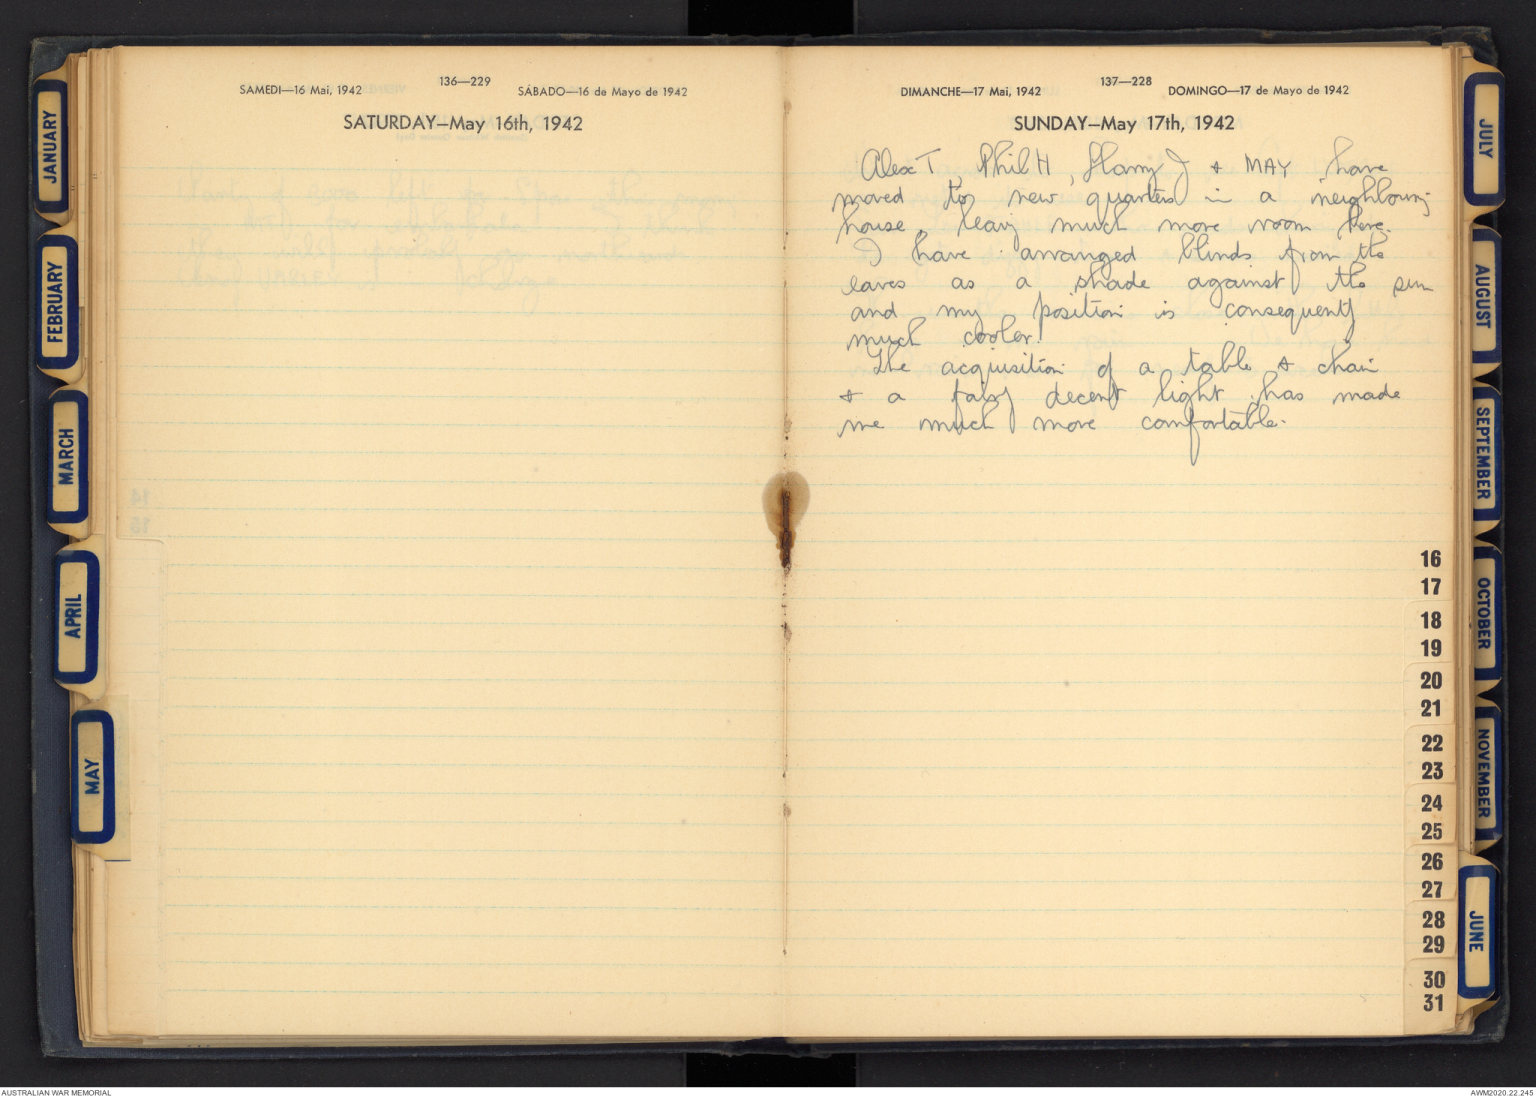 JANUARY
FEBRUARY
MARCH
APRIL
MAY
136—229
SAMEDI—16 Mai, 1942
SÁBADO—16 de Mayo de 1942
SATURDAY—May 16th, 1942
137—228
DIMANCHE—17 Mai, 1942
DOMINGO—17 de Mayo de 1942
SUNDAY—May 17th, 1942
Alex T, Phil H, Harry J & MAY have
moved to new quarters in a neighbouring
house, leaving much more room here.
I have arranged blinds from the
eaves as a shade against the sun
and my position is consequently
much cooler.
The acquisition of a table & chair
& a fairly decent light has made
me much more comfortable.
16
17
18
19
20
21
22
23
24
25
26
27
28
29
30
31
JULY
AUGUST
SEPTEMBER
OCTOBER
NOVEMBER
JUNE
AUSTRALIAN WAR MEMORIAL
AWM2020.22.245